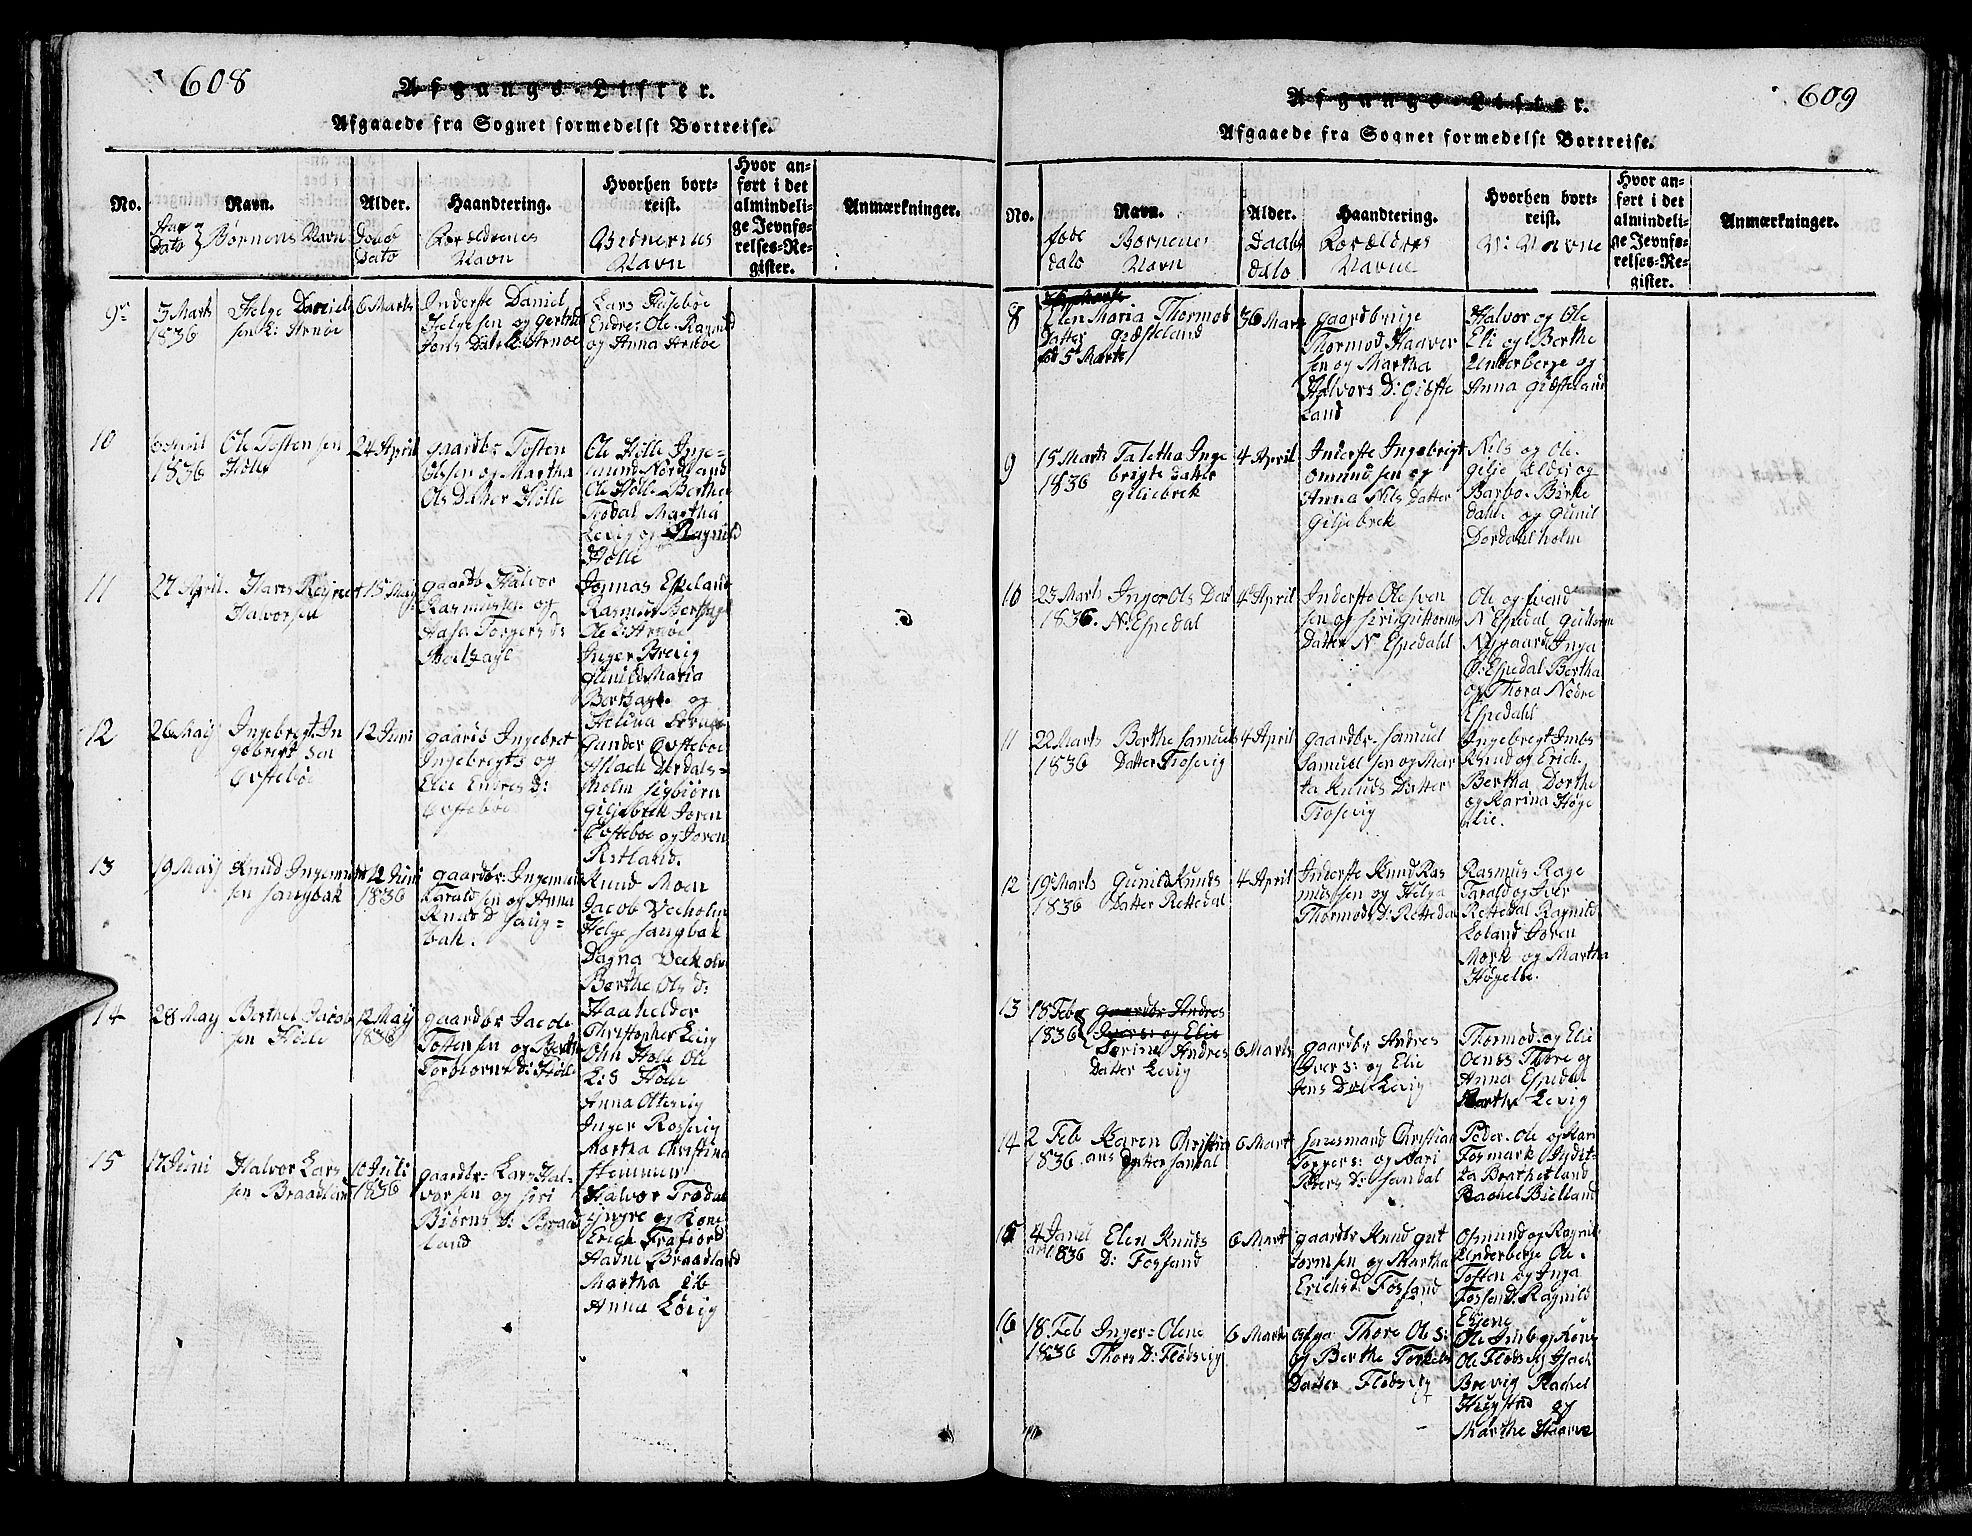 608
Afgangs-Lister.
Afgaaede fra Sognet formedelst Bortreise.
No.
Navn.
Alder.
Haandtering.
Hvorhen bort-
reist.
Hvor an-
ført i det
almindeli-
ge Jevnfø-
relses-Re-
gister.
Anmærkninger.
Dato
Børnens Navn
Daab
Dato
Forældrenes
Navn
Navn
9
3 Marts
1836
Helge Daniel
sen k: Arnøe
6 Marts
Inderste Daniel
Helgesen og Gertrud
Jons Datt: k: Arnøe
Lars Husebøe
Endre: Ole. Ragnild
og Anna Arnøe
10
6 April
1836
Ole Tostensen
Hølle
24 April
gaardbr Tosten
Olsen og Martha
Ols Datter Hølle
Ole Hølle Inge-
mund Nordland
Ole Hølle Berthe
Frødal Martha
Levig og Ragnild
Hølle
11
27 April
Hans Reinert
Halvorsen
15 May
gaardb Halvor
Rasmussen og
Aasa Torgers D:
Jonas Espeland
Rasmus Bershage
Ole k: Arnøe
Inger Brevig
Gunild Maria
Bershage og
Helina
12
26 May
Ingebregt In
gebregt sen
Eftebøe
12 Juni
gaardb Ingebret
Ingebregts og
Elie Endres D:
Eftebøe
Gunder Eftebøe
Aslach Dirdals-
holm Sigbiørn
Giljebrek Joren
Eftebøe og Joren
Retland.
13
19 May
Knud Ingemund
sen Sangbak
12 Juni
1836
gaardbr: Ingemund
Taraldsen og Anna
Knuds D Sang-
bak.
Knud Moen
Jacob Veeholm
Helge Sangbak
Dagna Veeholm
Berthe Ols D:
Haahelder
14
28 May
Berthel Jacob
sen Hølle
12 May
1836
gaardbr Jacob
Tostensen og Berthe
Torbiorns D: Hølle
Christopher Levig
Ohn Hølle Ole
L: S Hølle
Anna Ottesvig
Inger Rossevig
Martha Christina
Hemmen
15
17 Juni
Halvor Lars
sen Braadland
10 Juli
1836
gaardbr: Lars Hal-
vorsen og Siri
Biørns D: Braad
land
Halvor Frødal
Erich Frafiord
Hadne Braadland
Martha ib
Anna Løvig
609
Afgangs-Lister.
Afgaaede fra Sognet formedelst Bortreise.
No.
Navn.
Alder.
Haandtering.
Hvorhen bort-
reist.
Hvor an-
ført i det
almindeli-
ge Jevnfø-
relses-Re-
gister.
Anmærkninger.
føde
dato
Børnenes
Navn
Daabs
dato
Forældres
Navne
V: Navne
8
Elen Maria Thormods
Datter Giæsteland
5 Marts
gaardbruge
Thormod Haaver
sen og Martha
Halvors D: Giæste
land
Halvor og Ole
Eli og Berthe
Underberge og
Anna Giæsteland
9
15 Marts
1836
Taletha Inge
brigts Datter
Giliebrek
4 April
Inderste Ingebrigt
Omundsen og
Anna Nils Datter
Giljebrek
Nils og Ole
Gilje Elver og
Barbo Birke
dahl og Gunil
Dordalholm
10
23 Marts
1836.
Inger Ols Dat
N: Espedal
4 April
Inderste Ole Sven
sen og Siri Guttorms
Datter N: Espedahl
Ole og Svend
N Espedal Guttorm
Nygaard Inga
Ø: Espedal Bertha
og Thora Nedre
Espedahl
11
22 Marts
1836
Berthe Samuels
Datter Fiosevig
4 April
gaardbr. Samuel
Samuelsen og Mar
ta Knuds Datter
Fiosevig
Ingebregt Imbs
Knud og Erich.
Bertha Dorthe
og Karina Høge
Elie.
12
19 Marts
1836
Gunild Knuds
Datter Rettedal
4 April
Inderste Knud Ras
mussen og Helga
Thormods D: Rettedal
Rasmus Rage
Tarald og Iver
Rettedal Ragnild
Loland Joren
Mørk og Martha
Høgelie.
13
18 Feb
1836
gaardbr Andres
Ivers: og Elie
Serine Andres
Datter Levig
6 Marts
gaardbr Andres
Iver S: og Elie
Jens Dat Levig
Thormod og Elie
Oenes Thore og
Anna Espedal
Marthe Levig
14
2 Feb
1836
Karen Christia
ans Datter Sandal
6 Mart
Lænsmand Christian
Torgers: og Kari
Peters D: Sandal
Peder. Ole og Kari
Fosmark Bergit-
ta Brathetland
Rachel Bieland
15
4 Janu
ari 1836
Elen Knuds
D: Fossand
6 Mart
gaardbr Knud Gut
tormsen og Martha
Erichs D: Fossand
Osmund og Ragnil
Underberge Ole.
Tosten og Inga
Fossand. Ragnild
Espene
16
18 Feb
1836
Inger-Olene
Thors D: Flødsvig
6 Marts
Thore Ole S:
og Berthe Torkils
Datter Flødsvig
Ole Imb og Køne
Ole Flødsvig Isach
Brevig Rachel
Haustad og
Marthe Haavs